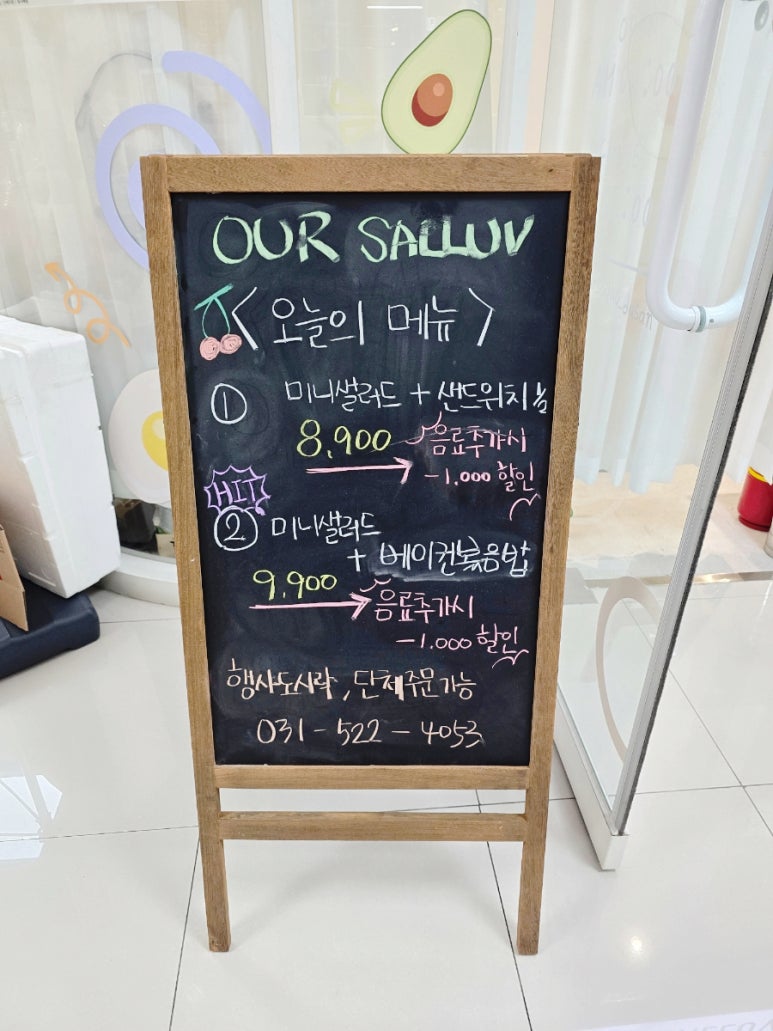 OUR SALLUV
<오늘의 메뉴>
① 미니샐러드 + 샌드위치½
8,900 음료추가시
-1,000 할인
HIT
② 미니샐러드
+ 베이컨볶음밥
9,900 음료추가시
-1,000 할인
행사도시락, 단체주문가능
031-522-4053